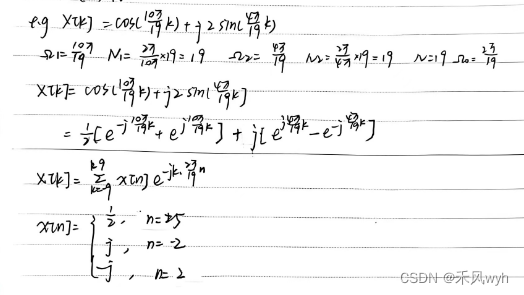 e.g X[k] = cos(10π/19 k) + j 2 sin(4π/19 k)
Ω1 = 10π/19 N1 = 2π/10π × 19 = 19 Ω2 = 4π/19 N2 = 2π/4π × 19 = 19 N = 19 Ω0 = 2π/19
X[k] = cos(10π/19 k) + j 2 sin(4π/19 k]
= 1/2 [e^{-j 10π/19 k} + e^{j 10π/19 k}] + j[e^{j 4π/19 k} - e^{-j 4π/19 k}]
X[k] = Σ x[n] e^{-jk· 2π/19 n}
x[n] = { 1/2, n = ±5
j, n = -2
-j, n = 2
CSDN @禾风wyh